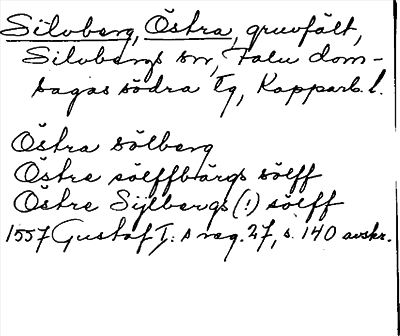 Silvberg, Östra, gruvfält,
Silvbergs sn, Falu dom-
sagas södra tg, Kopparb. l.
Östra sölberg
Östre sölffbärgs sölff
Östre Sylbergs (!) sölff
1557 Gustaf I:s reg. 27, s. 140 avskr.